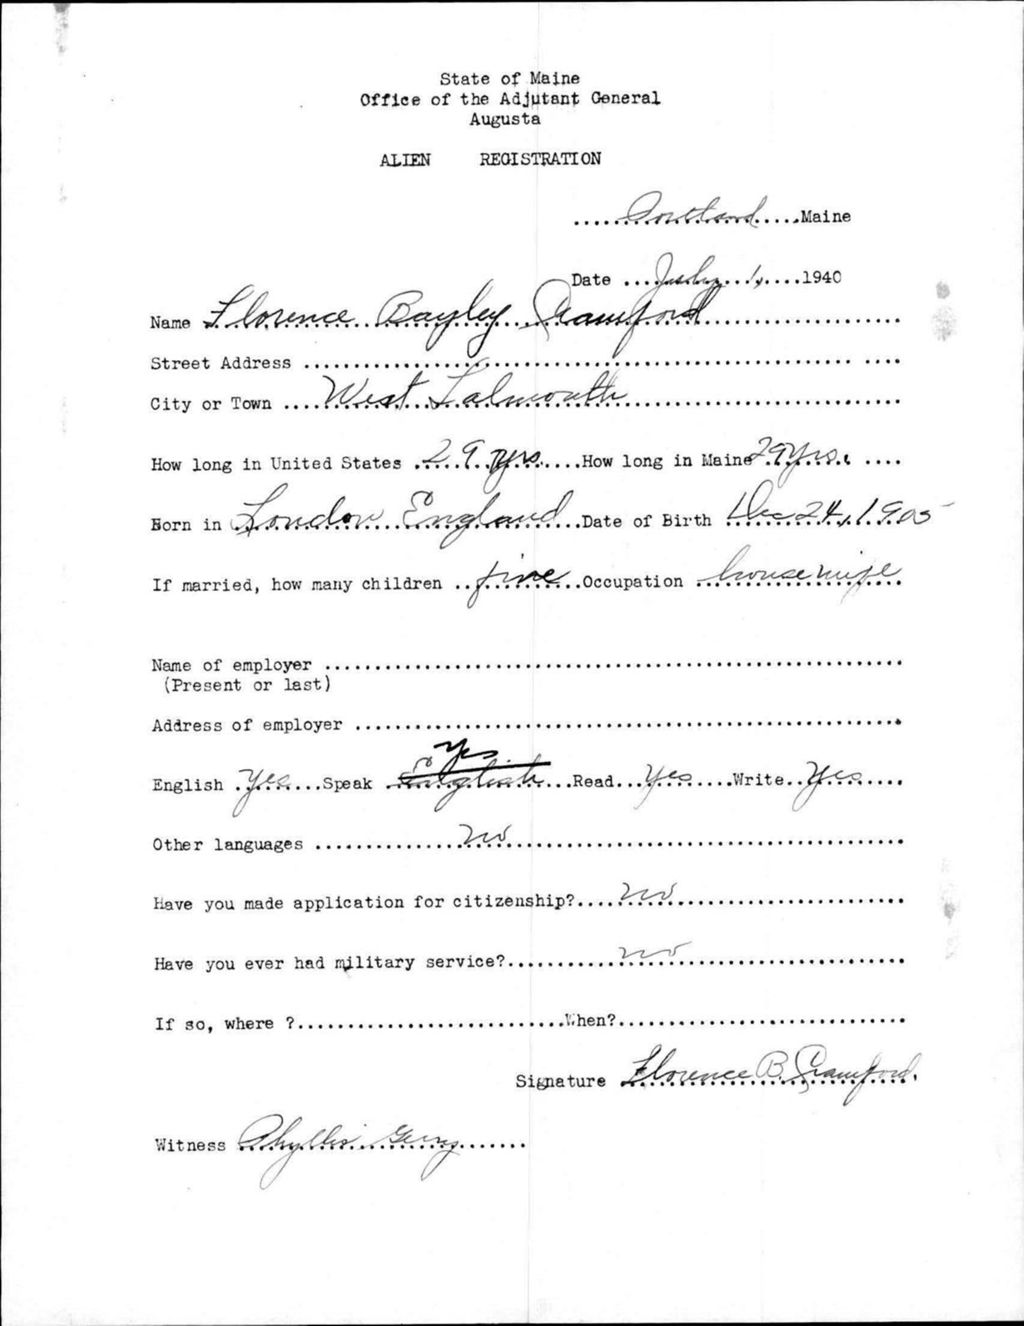 State of Maine
Office of the Adjutant General
Augusta
ALIEN REGISTRATION
.....Portland.....Maine
Date ...July...1,....1940
Name Florence Bayley Crawford
Street Address ........................................................
City or Town ....West Falmouth
How long in United States .29 yrs.....How long in Maine 29 yrs. ....
Born in London England...Date of Birth Dec 24, 1905
If married, how many children ..five...Occupation housewife
Name of employer ........................................................
(Present or last)
Address of employer ........................................................
Yes
English .Yes....Speak English...Read...Yes....Write..Yes....
Other languages ...............no........................................
Have you made application for citizenship?....no........................
Have you ever had military service?...........no........................
If so, where ?...........................When?............................
Signature Florence B. Crawford.
Witness Phyllis Gerry.......